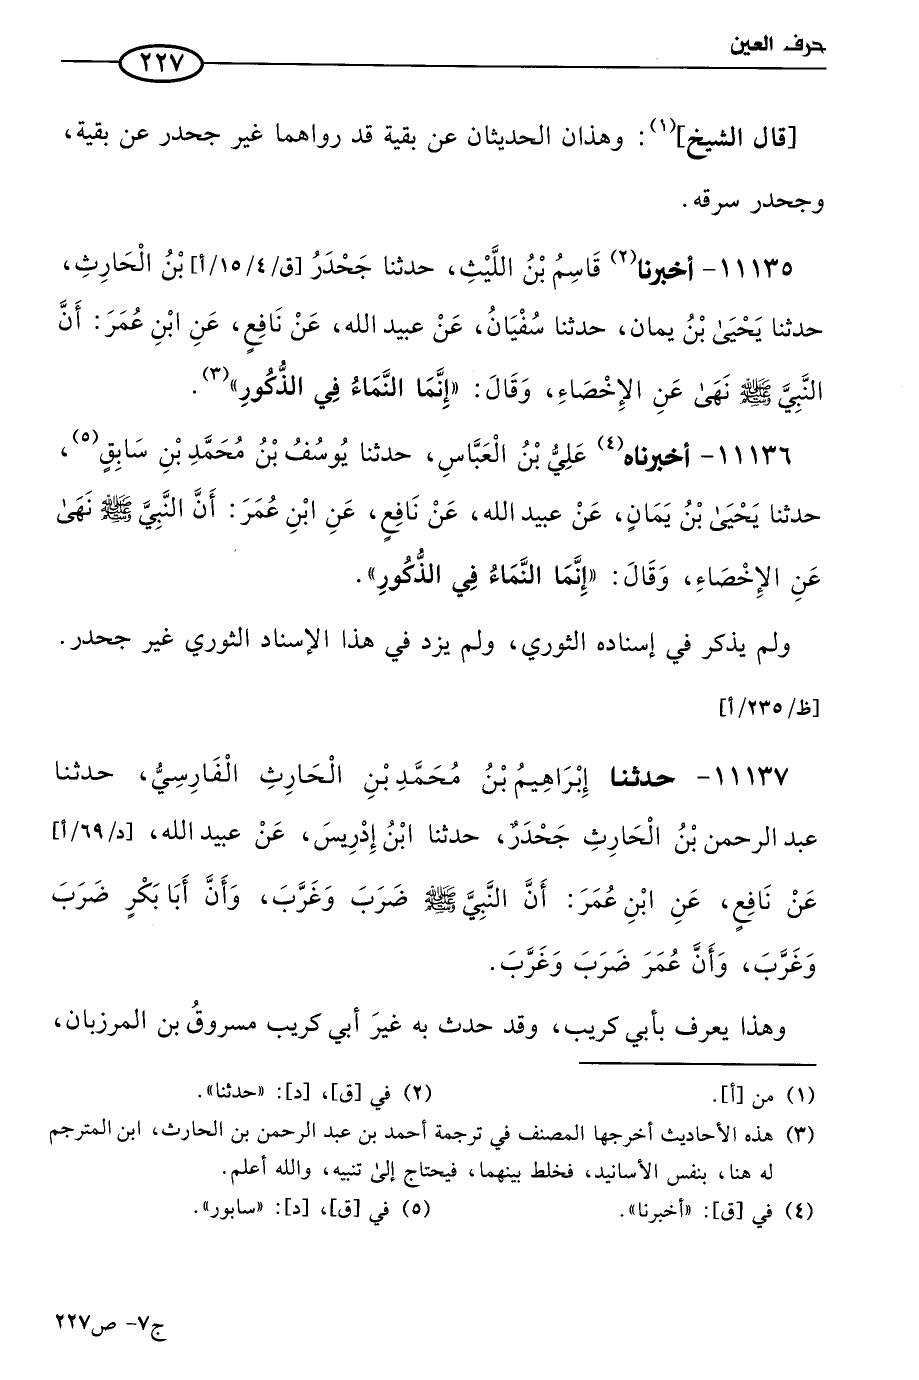 حرف العين
٢٢٧
[قال الشيخ](١): وهذان الحديثان عن بقية قد رواهما غير جحدر عن بقية،
وجحدر سرقه.
١١١٣٥- أخبرنا(٢) قَاسِمُ بْنُ اللَّيْثِ، حدثنا جَحْدَرُ [ق/٤/١٥/أ] بْنُ الْحَارِثِ،
حدثنا يَحْيَىٰ بْنُ يمان، حدثنا سُفْيَانُ، عَنْ عبيد الله، عَنْ نَافِعٍ، عَنِ ابْنِ عُمَرَ: أَنَّ
النَّبِيَّ ﷺ نَهَىٰ عَنِ الإِخْصَاءِ، وَقَالَ: «إِنَّمَا النَّمَاءُ فِي الذُّكُورِ»(٣).
١١١٣٦- أخبرناه(٤) عَلِيُّ بْنُ الْعَبَّاسِ، حدثنا يُوسُفُ بْنُ مُحَمَّدِ بْنِ سَابِقٍ(٥)،
حدثنا يَحْيَىٰ بْنُ يَمَانٍ، عَنْ عبيد الله، عَنْ نَافِعٍ، عَنِ ابْنِ عُمَرَ: أَنَّ النَّبِيَّ ﷺ نَهَىٰ
عَنِ الإِخْصَاءِ، وَقَالَ: «إِنَّمَا النَّمَاءُ فِي الذُّكُورِ».
ولم يذكر في إسناده الثوري، ولم يزد في هذا الإسناد الثوري غير جحدر.
[ظ/٢٣٥/أ]
١١١٣٧- حدثنا إِبْرَاهِيمُ بْنُ مُحَمَّدِ بْنِ الْحَارِثِ الْفَارِسِيُّ، حدثنا
عبد الرحمن بْنُ الْحَارِثِ جَحْدَرٌ، حدثنا ابْنُ إِدْرِيسَ، عَنْ عبيد الله، [د/٦٩/أ]
عَنْ نَافِعٍ، عَنِ ابْنِ عُمَرَ: أَنَّ النَّبِيَّ ﷺ ضَرَبَ وَغَرَّبَ، وَأَنَّ أَبَا بَكْرٍ ضَرَبَ
وَغَرَّبَ، وَأَنَّ عُمَرَ ضَرَبَ وَغَرَّبَ.
وهذا يعرف بأبي كريب، وقد حدث به غيرَ أبي كريب مسروقُ بن المرزبان،
(١) من [أ]. (٢) في [ق]، [د]: «حدثنا».
(٣) هذه الأحاديث أخرجها المصنف في ترجمة أحمد بن عبد الرحمن بن الحارث، ابن المترجم
له هنا، بنفس الأسانيد، فخلط بينهما، فيحتاج إلىٰ تنبيه، والله أعلم.
(٤) في [ق]: «أخبرنا». (٥) في [ق]، [د]: «سابور».
ج٧- ص٢٢٧